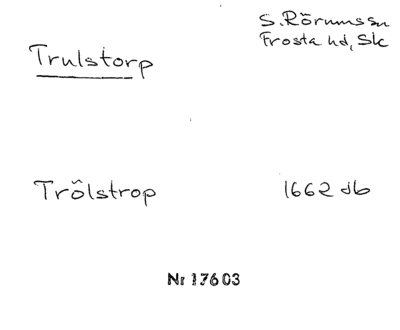 S. Rörums sn
Frosta hd, Sk
Trulstorp
Trölstrop
1662 db
Nr 17603